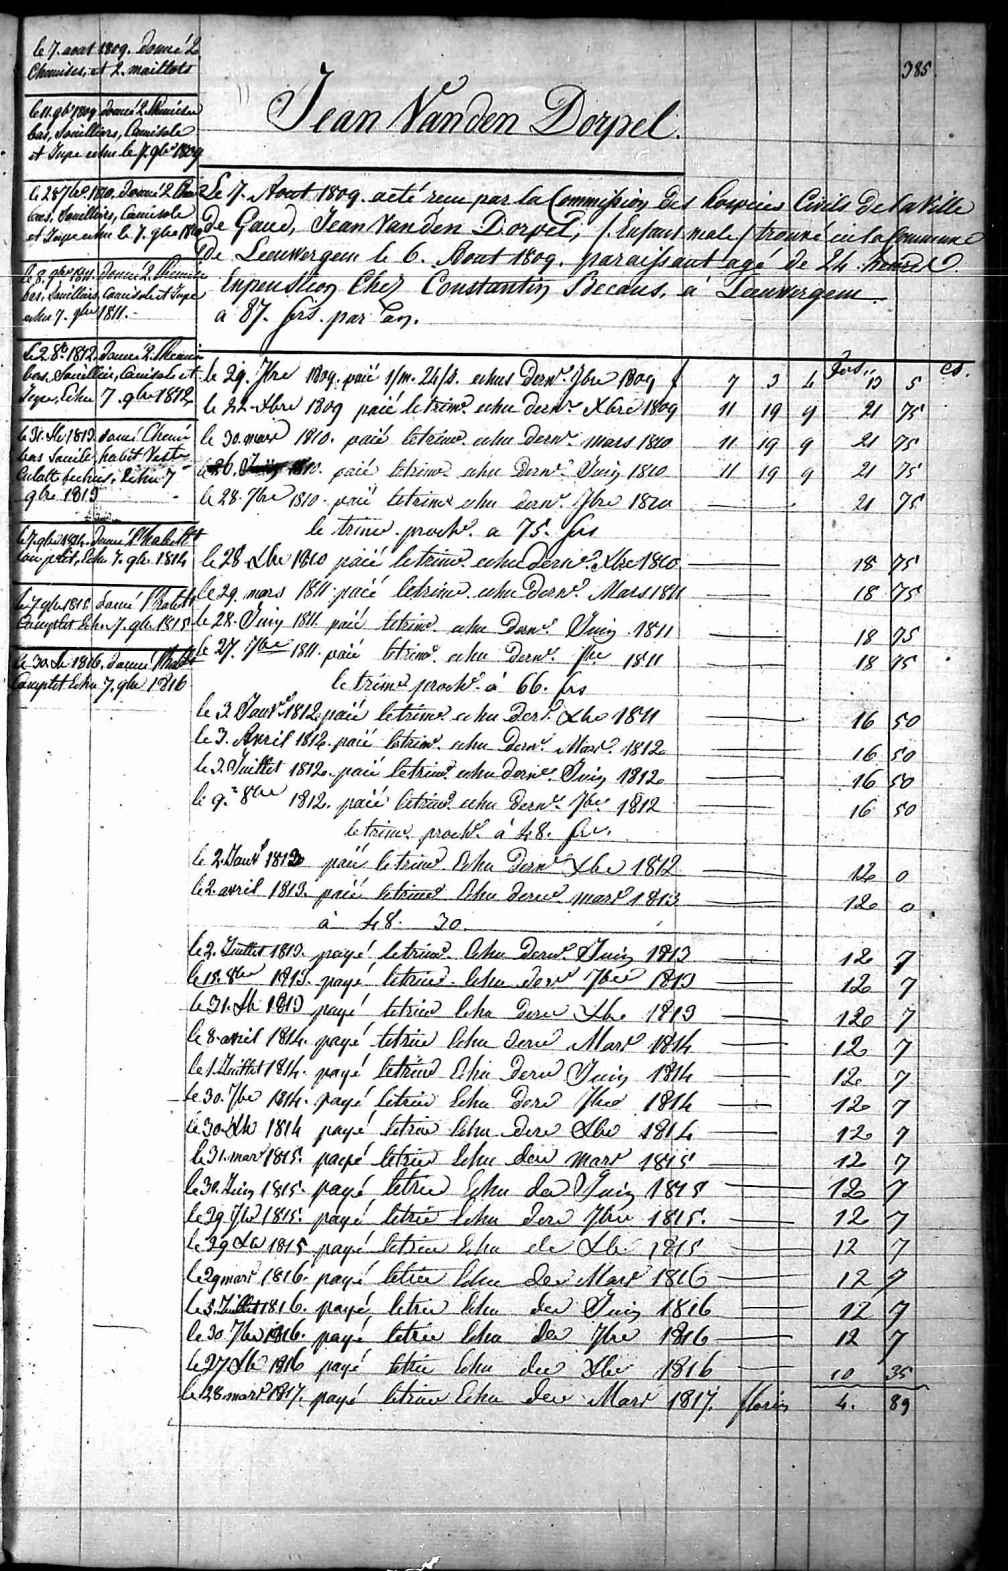 385
Jean Vanden Dorpel.
le 7. aout 1809. donné 2
Chemises, et 2. maillots
le 11. 9bre 1809 donné 2. Chemises
bas, Souilliers, Camisole
et Jupe echu le 7. 9bre 1809
le 28 7bre 1810. donné 2 Chem
bas, Souilliers, Camisole
et Jupe echu le 7. 9bre 1810
le 8. 9bre 1811. donné 2. Chemis
bas, Souilliers Camisole et Jupe
echu 7. 9bre 1811.
Le 2 8bre 1812. donné 2. Chemis
bas. Souilliers, Camisole et
Jupe, Echu 7. 9bre 1812
le 31. Xbre 1813. donné Chemis
bas Souile habit Veste
Culotte Echu 7
9bre 1813
le 7 9bre 1814. donné l'habillt
Complet, Echu 7. 9bre 1814
le 7 9bre 1815 donné l'habillt
Complet Echu 7. 9bre 1815
le 30 Xbre 1816. donné l'habillt
Complet Echu 7. 9bre 1816
Le 7. Aout 1809. a été reçu par la Commission des hospices Civils de la Ville
de Gand, Jean Vanden Dorpel, (Enfant male) trouvé en la Commune
de Leeuwergem le 6. Aout 1809. paraissant agé de 24. heures.
En pension Chez Constantin à Leeuwergem
a 87. frs. par an.
frs.. cs.
le 29. 7bre 1809. paié 1/m. 24/j. echus dernr 7bre 1809 f 7 3 4 13 5
le 22. Xbre 1809 paié le trime. echu dernr Xbre 1809 11 19 9 21 75
le 30. mars 1810. paié le trime. echu dernr mars 1810 11 19 9 21 75
le 26. Juin 1810. paié le trime echu dernr Juin 1810 11 19 9 21 75
le 28. 7bre 1810. paié le trime echu dernr 7bre 1810 21 75
le trime. prochn. a 75. frs
le 28 Xbre 1810 paié le trime. echu dernr. Xbre 1810 18 75
le 29. mars 1811. paié le trime. echu dernr. Mars 1811 18 75
le 28. Juin 1811. paié le trime. echu dernr. Juin 1811 18 75
le 27. 7bre 1811. paié le trime. echu dernr. 7bre 1811 18 75
le trime prochn. à 66. frs
le 3 Janvr. 1812. paié le trime. echu derr. Xbre 1811 16 50
le 3. Avril 1812. paié le trime. echu dernr. Mars. 1812 16 50
le 3. Juillet 1812. paié le trime. echu dernr. Juin 1812 16 50
le 9. 8bre 1812. paié le trime. echu dernr. 7bre 1812 16 50
le trime. prochn. à 48. frs.
le 2. Janvr 1813 paié le trime Echu dernr Xbre 1812 12 0
le 2. avril 1813. paié le trime Echu dernr mars 1813 12 0
à 48. 30
le 2. Juillet 1813. payé le trime. Echu dernr. Juin 1813 12 7
le 18. 8bre 1813. payé le trime. Echu dernr 7bre 1813 12 7
le 31. Xbre 1813 payé le trime Echu dernr Xbre 1813 12 7
le 8. avril 1814. payé le trime Echu dernr Mars 1814 12 7
le 1. Juillet 1814. payé le trime Echu dernr Juin 1814 12 7
le 30. 7bre 1814. payé le trime Echu dernr 7bre 1814 12 7
le 30 Xbre 1814 payé le trime Echu dernr Xbre 1814 12 7
le 31. mars 1815. payé le trime Echu dernr mars 1815 12 7
le 30. Juin 1815. payé le trime Echu der Juin 1815 12 7
le 29 7bre 1815. payé le trime Echu dernr 7bre 1815. 12 7
le 29 Xbre 1815 payé le trime Echu de Xbre 1815 12 7
le 29 mars 1816. payé le trime Echu der Mars 1816 12 7
le 3. Juillet 1816. payé le trime Echu der Juin 1816 12 7
le 30 7bre 1816. payé le trime Echu der 7bre 1816 12 7
le 27 Xbre 1816 payé le trime Echu der Xbre 1816 10 35
le 28 mars 1817. payé le trime Echu der Mars 1817. florin 4. 89